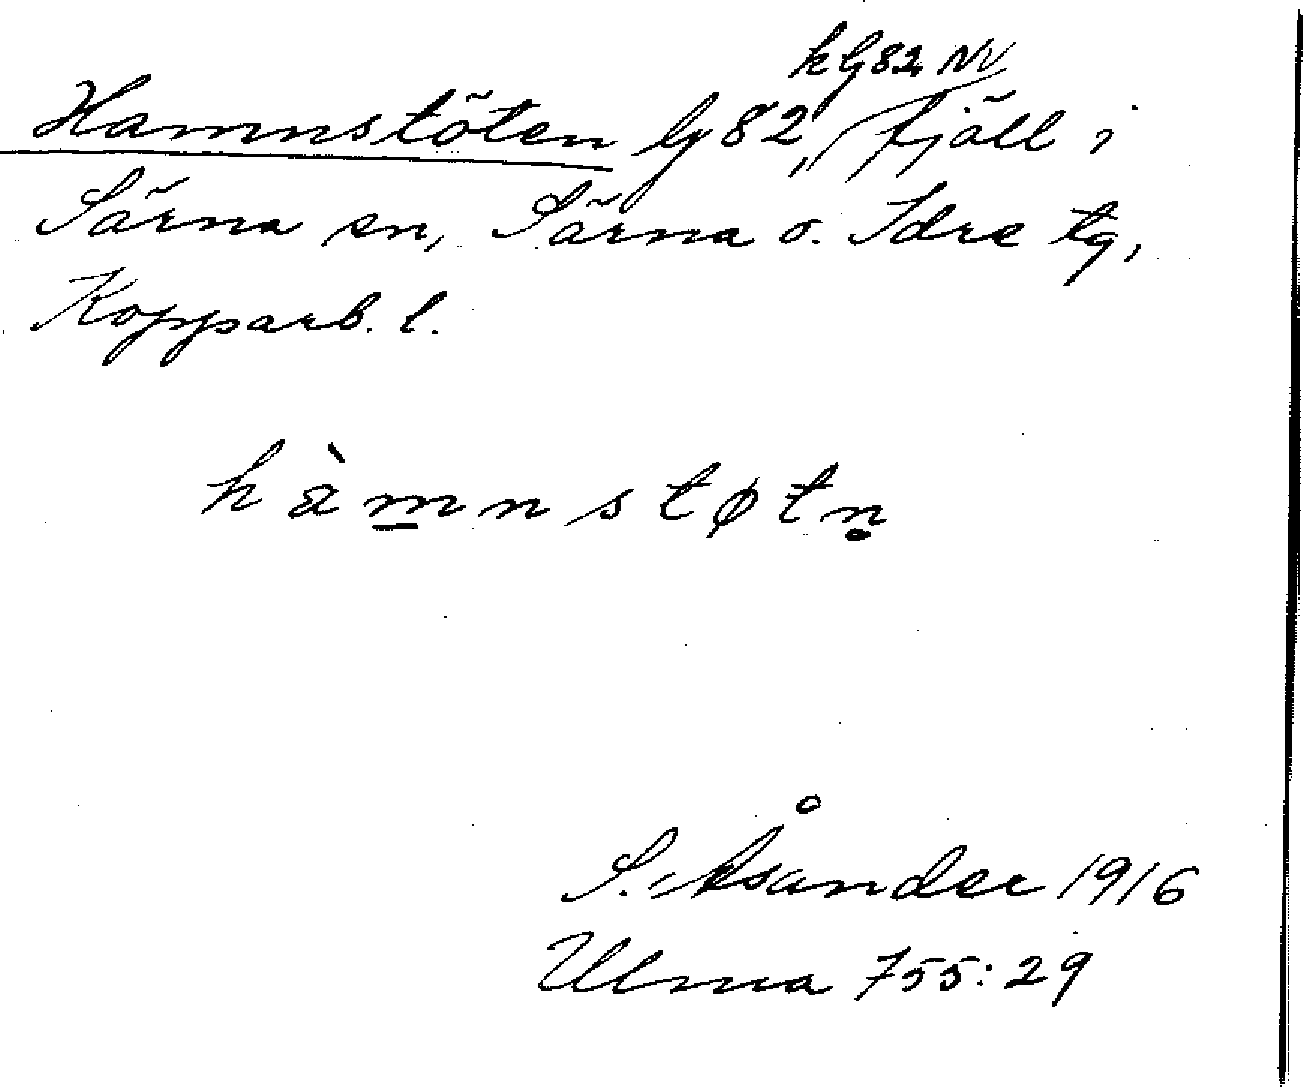 k lj 82 NV
Hamnstöten lj 82, fjäll i
Särna sn, Särna o. Idre tg,
Kopparb. l.
hàm̲nstøtn̥
S. Åsander 1916
Ulma 755:29